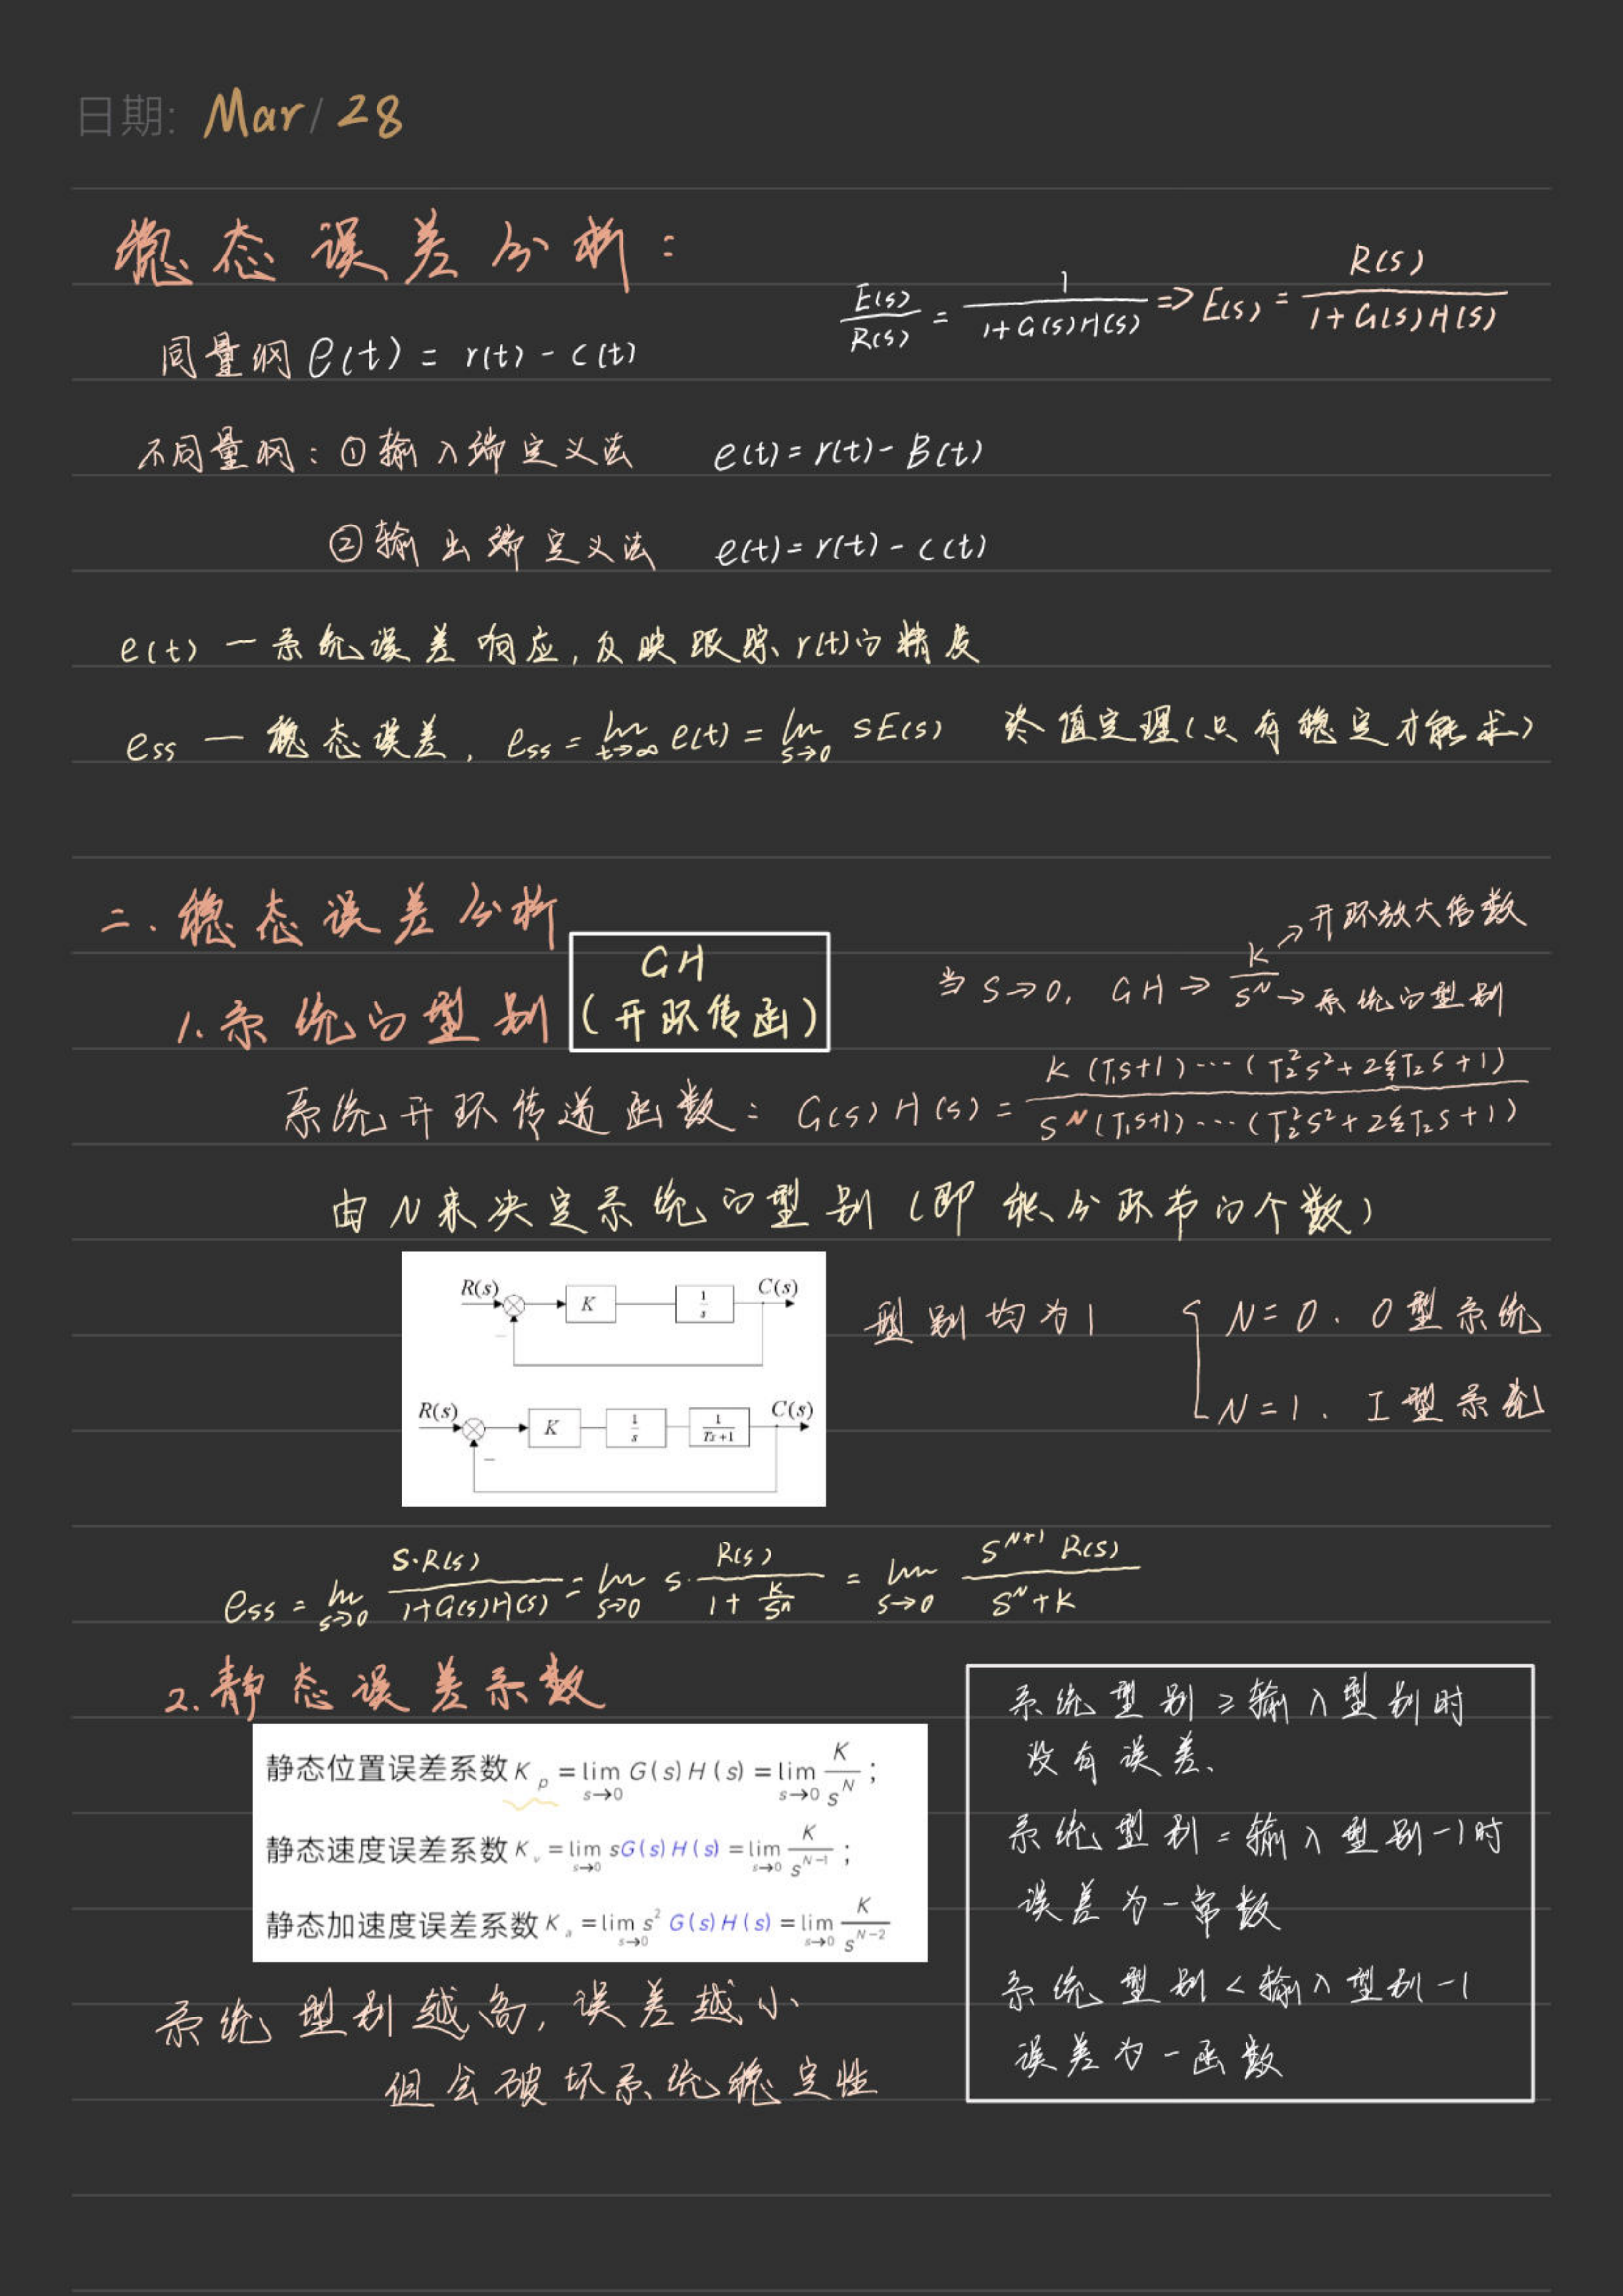 日期: Mar / 28
稳态误差分析：
E(s)/R(s) = 1/(1+G(s)H(s)) => E(s) = R(s)/(1+G(s)H(s))
同量纲 e(t) = r(t) - c(t)
不同量纲：①输入端定义法 e(t) = r(t) - B(t)
②输出端定义法 e(t) = r(t) - c(t)
e(t) — 系统误差响应，反映跟踪 r(t)的精度
ess — 稳态误差， ess = lim t→∞ e(t) = lim s→0 sE(s) 终值定理(只有稳定才能求)
二. 稳态误差分析
1. 系统的型别
GH
(开环传函)
当 s→0， GH → K/s^N
K → 开环放大倍数
s^N → 系统的型别
系统开环传递函数： G(s)H(s) = K(T₁s+1)···(T₂²s²+2ξT₂s+1) / s^N(T₁s+1)···(T₂²s²+2ξT₂s+1)
由 N 来决定系统的型别 (即积分环节的个数)
R(s) K 1/s C(s)
−
R(s) K 1/s 1/(Ts+1) C(s)
−
型别均为1
N=0. 0型系统
N=1. I型系统
ess = lim s→0 s·R(s)/(1+G(s)H(s)) = lim s→0 s·R(s)/(1+K/s^n) = lim s→0 s^(N+1) R(s)/(s^N+K)
2. 静态误差系数
静态位置误差系数 K_p = lim s→0 G(s)H(s) = lim s→0 K/s^N ;
静态速度误差系数 K_v = lim s→0 sG(s)H(s) = lim s→0 K/s^(N−1) ;
静态加速度误差系数 K_a = lim s→0 s² G(s)H(s) = lim s→0 K/s^(N−2)
系统型别越高，误差越小
但会破坏系统稳定性
系统型别 ≥ 输入型别时
没有误差.
系统型别 = 输入型别-1时
误差为一常数
系统型别 < 输入型别-1
误差为一函数